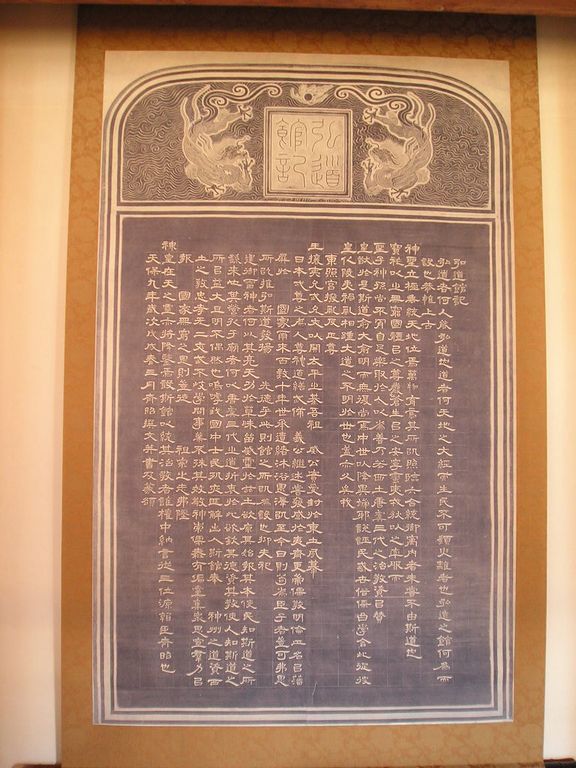 弘道
館記
弘道館記
弘道者何人能弘道也道者何天地之大經而生民不可須臾離者也弘道之館何爲而
設也恭惟上古
神聖立極垂統天地位焉萬物育焉其所以照臨六合統御寓內者未嘗不由斯道也
寶祚以之無窮國體以之尊嚴蒼生以之安寧蠻夷戎狄以之率服而
聖子神孫尚不肯自足樂取於人以爲善乃若西土唐虞三代之治敎資以贊
皇猷於是斯道愈大愈明而無復尚焉中世以降異端邪說誣民惑世俗儒曲學舍此從彼
皇化陵夷禍亂相踵大道之不明於世也蓋亦久矣我
東照宮撥亂反正尊
王攘夷允武允文以開太平之基吾祖　威公實受封於東土夙慕
日本武尊之爲人尊神道繕武備　義公繼述嘗發感於夷齊更崇儒敎明倫正名以藩
屏於　國家爾來百數十年世承遺緒沐浴恩澤以至今日則苟爲臣子者豈可弗思
所以推弘斯道發揚　先德乎此則館之所以爲設也抑夫祀
建御雷神者何以其亮天功於草昧留威靈於茲土欲原其始報其本使民知斯道之所
繇來也其營孔子廟者何以唐虞三代之道折衷於此欲欽其德資其敎使人知斯道之
所以益大且明不偶然也嗚呼我國中士民夙夜匪解出入斯館奉　神州之道資西
土之敎忠孝无二文武不岐學問事業不殊其效敬神崇儒無有偏黨集衆思宣群力以
報　國家無窮之恩則豈徒　祖宗之志弗墜
神皇在天之靈亦將降鑒焉設斯館以統其治敎者誰權中納言從三位源朝臣齊昭也
天保九年歲次戊戌春三月齊昭撰文幷書及篆額